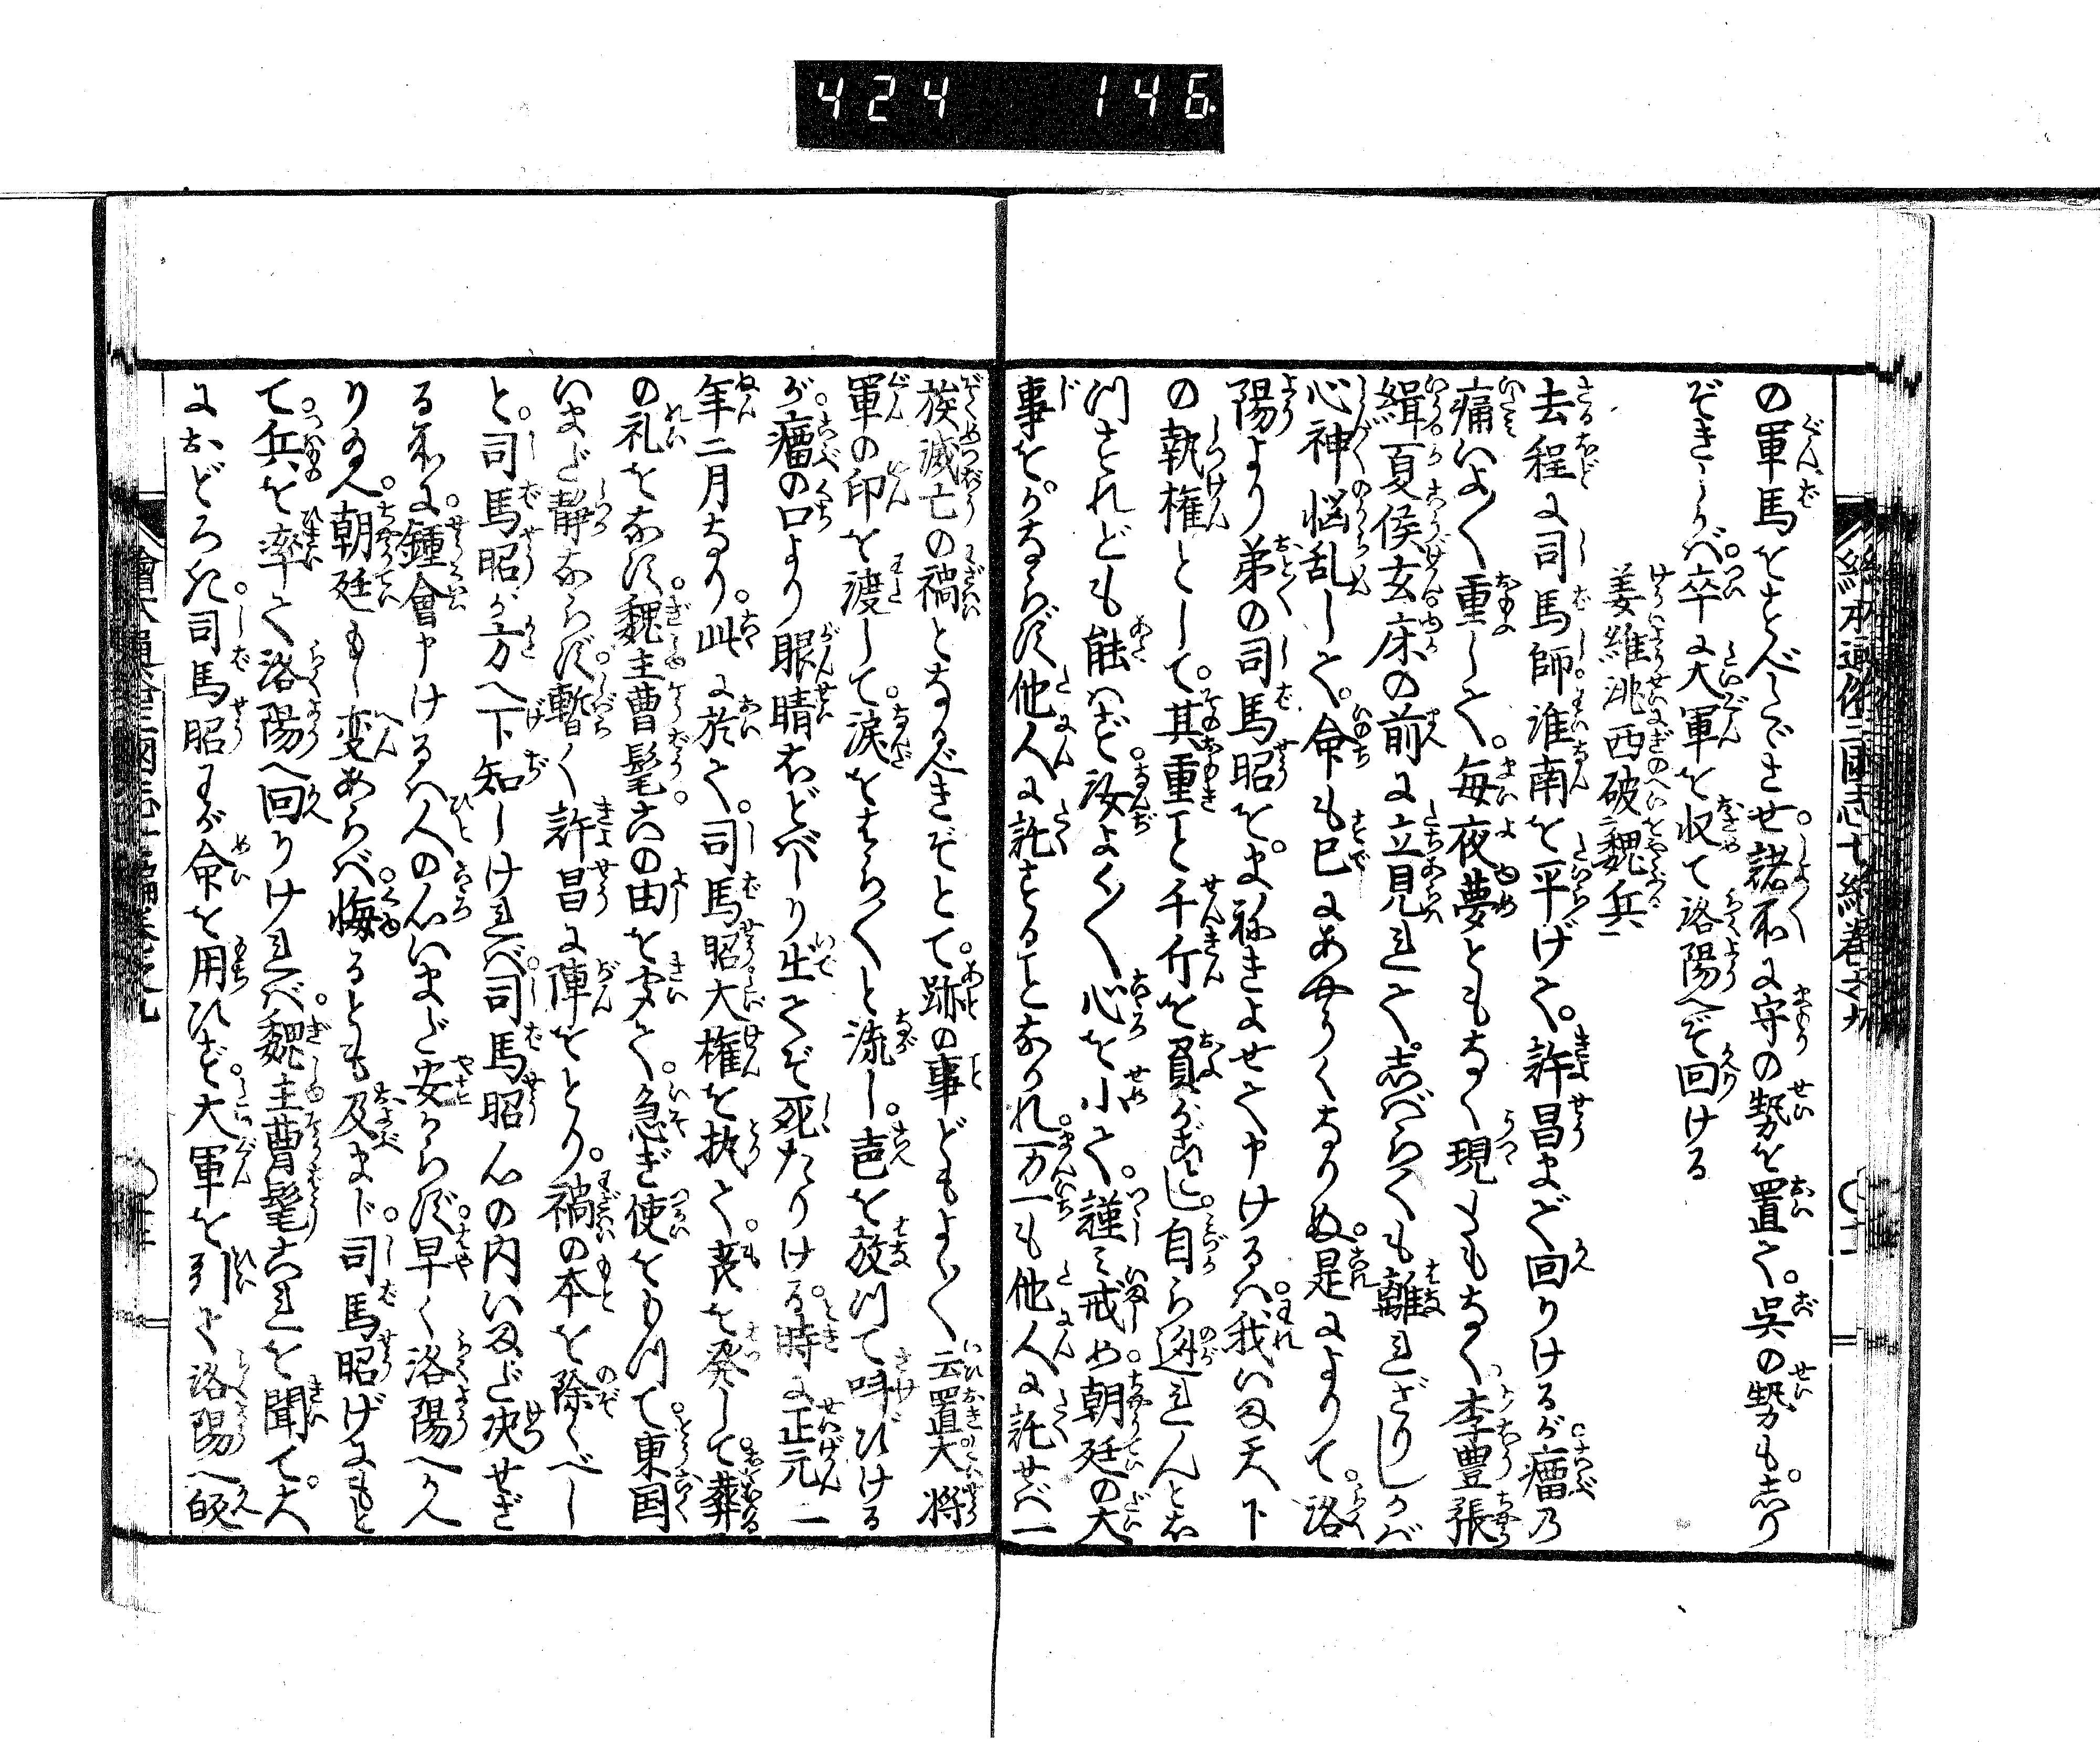 424 146
の軍馬をとゞべらでさせ。諸所に守の勢を置て。呉の勢も。志り
ぞきしかば。卒に大軍を収て洛陽へぞ回ける
姜維洮西破魏兵
去程に司馬師淮南を平げて。許昌まで回りけるが。瘤乃
痛いよ〱重して。毎夜夢ともなく現ともなく。李豊張
緝夏侯玄床の前に立見れて。志ばらくも離れざりしかば
心神悩乱して。命も已にあやうくなりぬ。是によりて。洛
陽より弟の司馬昭を。まねきよせて申けるハ。我いま天下
の執権として。其重こと千斤を負がごとし。自ら遜れんとお
川すれども能ハず。汝よく〱心を小て。謹ミ戒め。朝廷の大
事を。かならず他人に託することなかれ。万一も他人に託せば一
族滅亡の禍となるべきぞとて。跡の事どもよく〱云置。大将
軍の印を渡して。涙をはら〱と流し。声を放川て叫びける
が。瘤の口より眼睛おどバしり出てぞ死たりける。時に正元二
年二月なり。此に於て。司馬昭大権を執て。喪を発して葬
の礼をおなハず。魏主曹髦。此の由を聞て。急ぎ使をもつて。東国
いまだ静ならず。暫く許昌に陣をとり。禍の本を除くべし
と。司馬昭が方へ下知しければ。司馬昭心の内いまだ決せざ
る所に。鍾會申けるハ人の心いまだ安からず。早く洛陽へかへ
り給へ。朝廷もし変あらば。悔るとも及まじ。司馬昭げにもと
て。兵を率て洛陽へ回りければ。魏主曹髦これを聞て。大
におどろき。司馬昭わが命を用ひず。大軍を引て洛陽へ皈